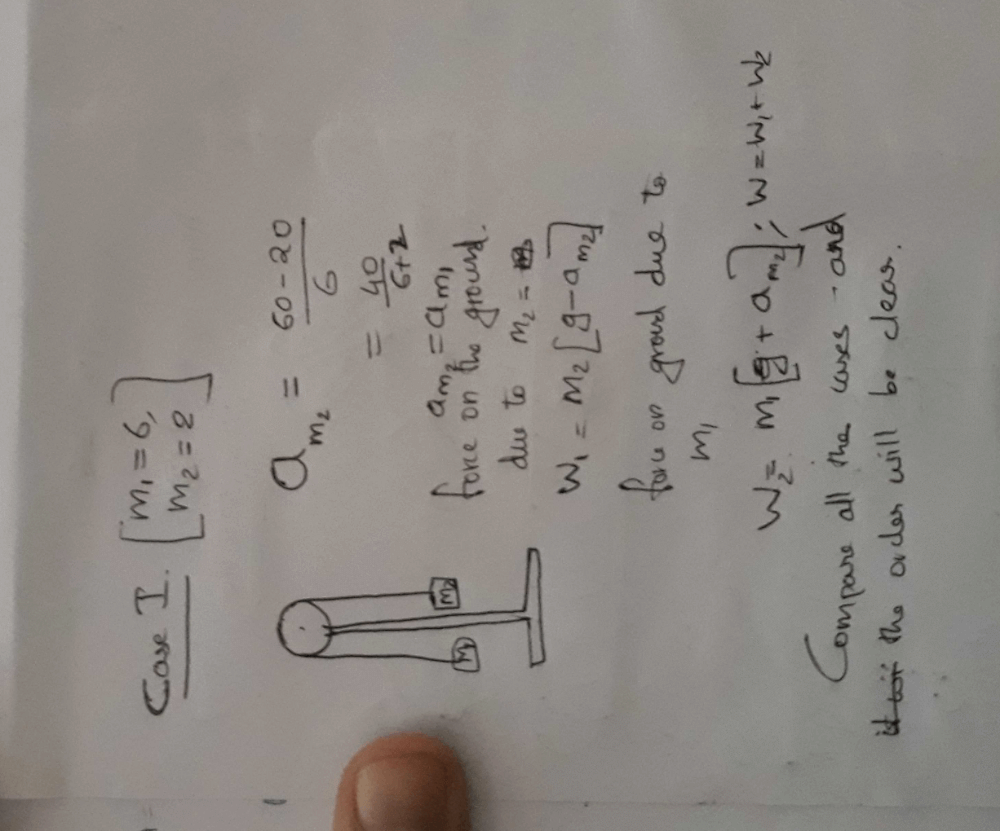 Case I. [m₁ = 6, m₂ = 2]
m₁
m₂
a_m₂ = 60 - 20 / 6
= 40 / 6+2
a_m₂ = a_m₁
force on the ground.
due to m₂ =
W₁ = m₂ [g - a_m₂]
force on ground due to
m₁
W₂ = m₁ [g + a_m₂] ; W = W₁ + W₂
Compare all the cases - and
the order will be clear.